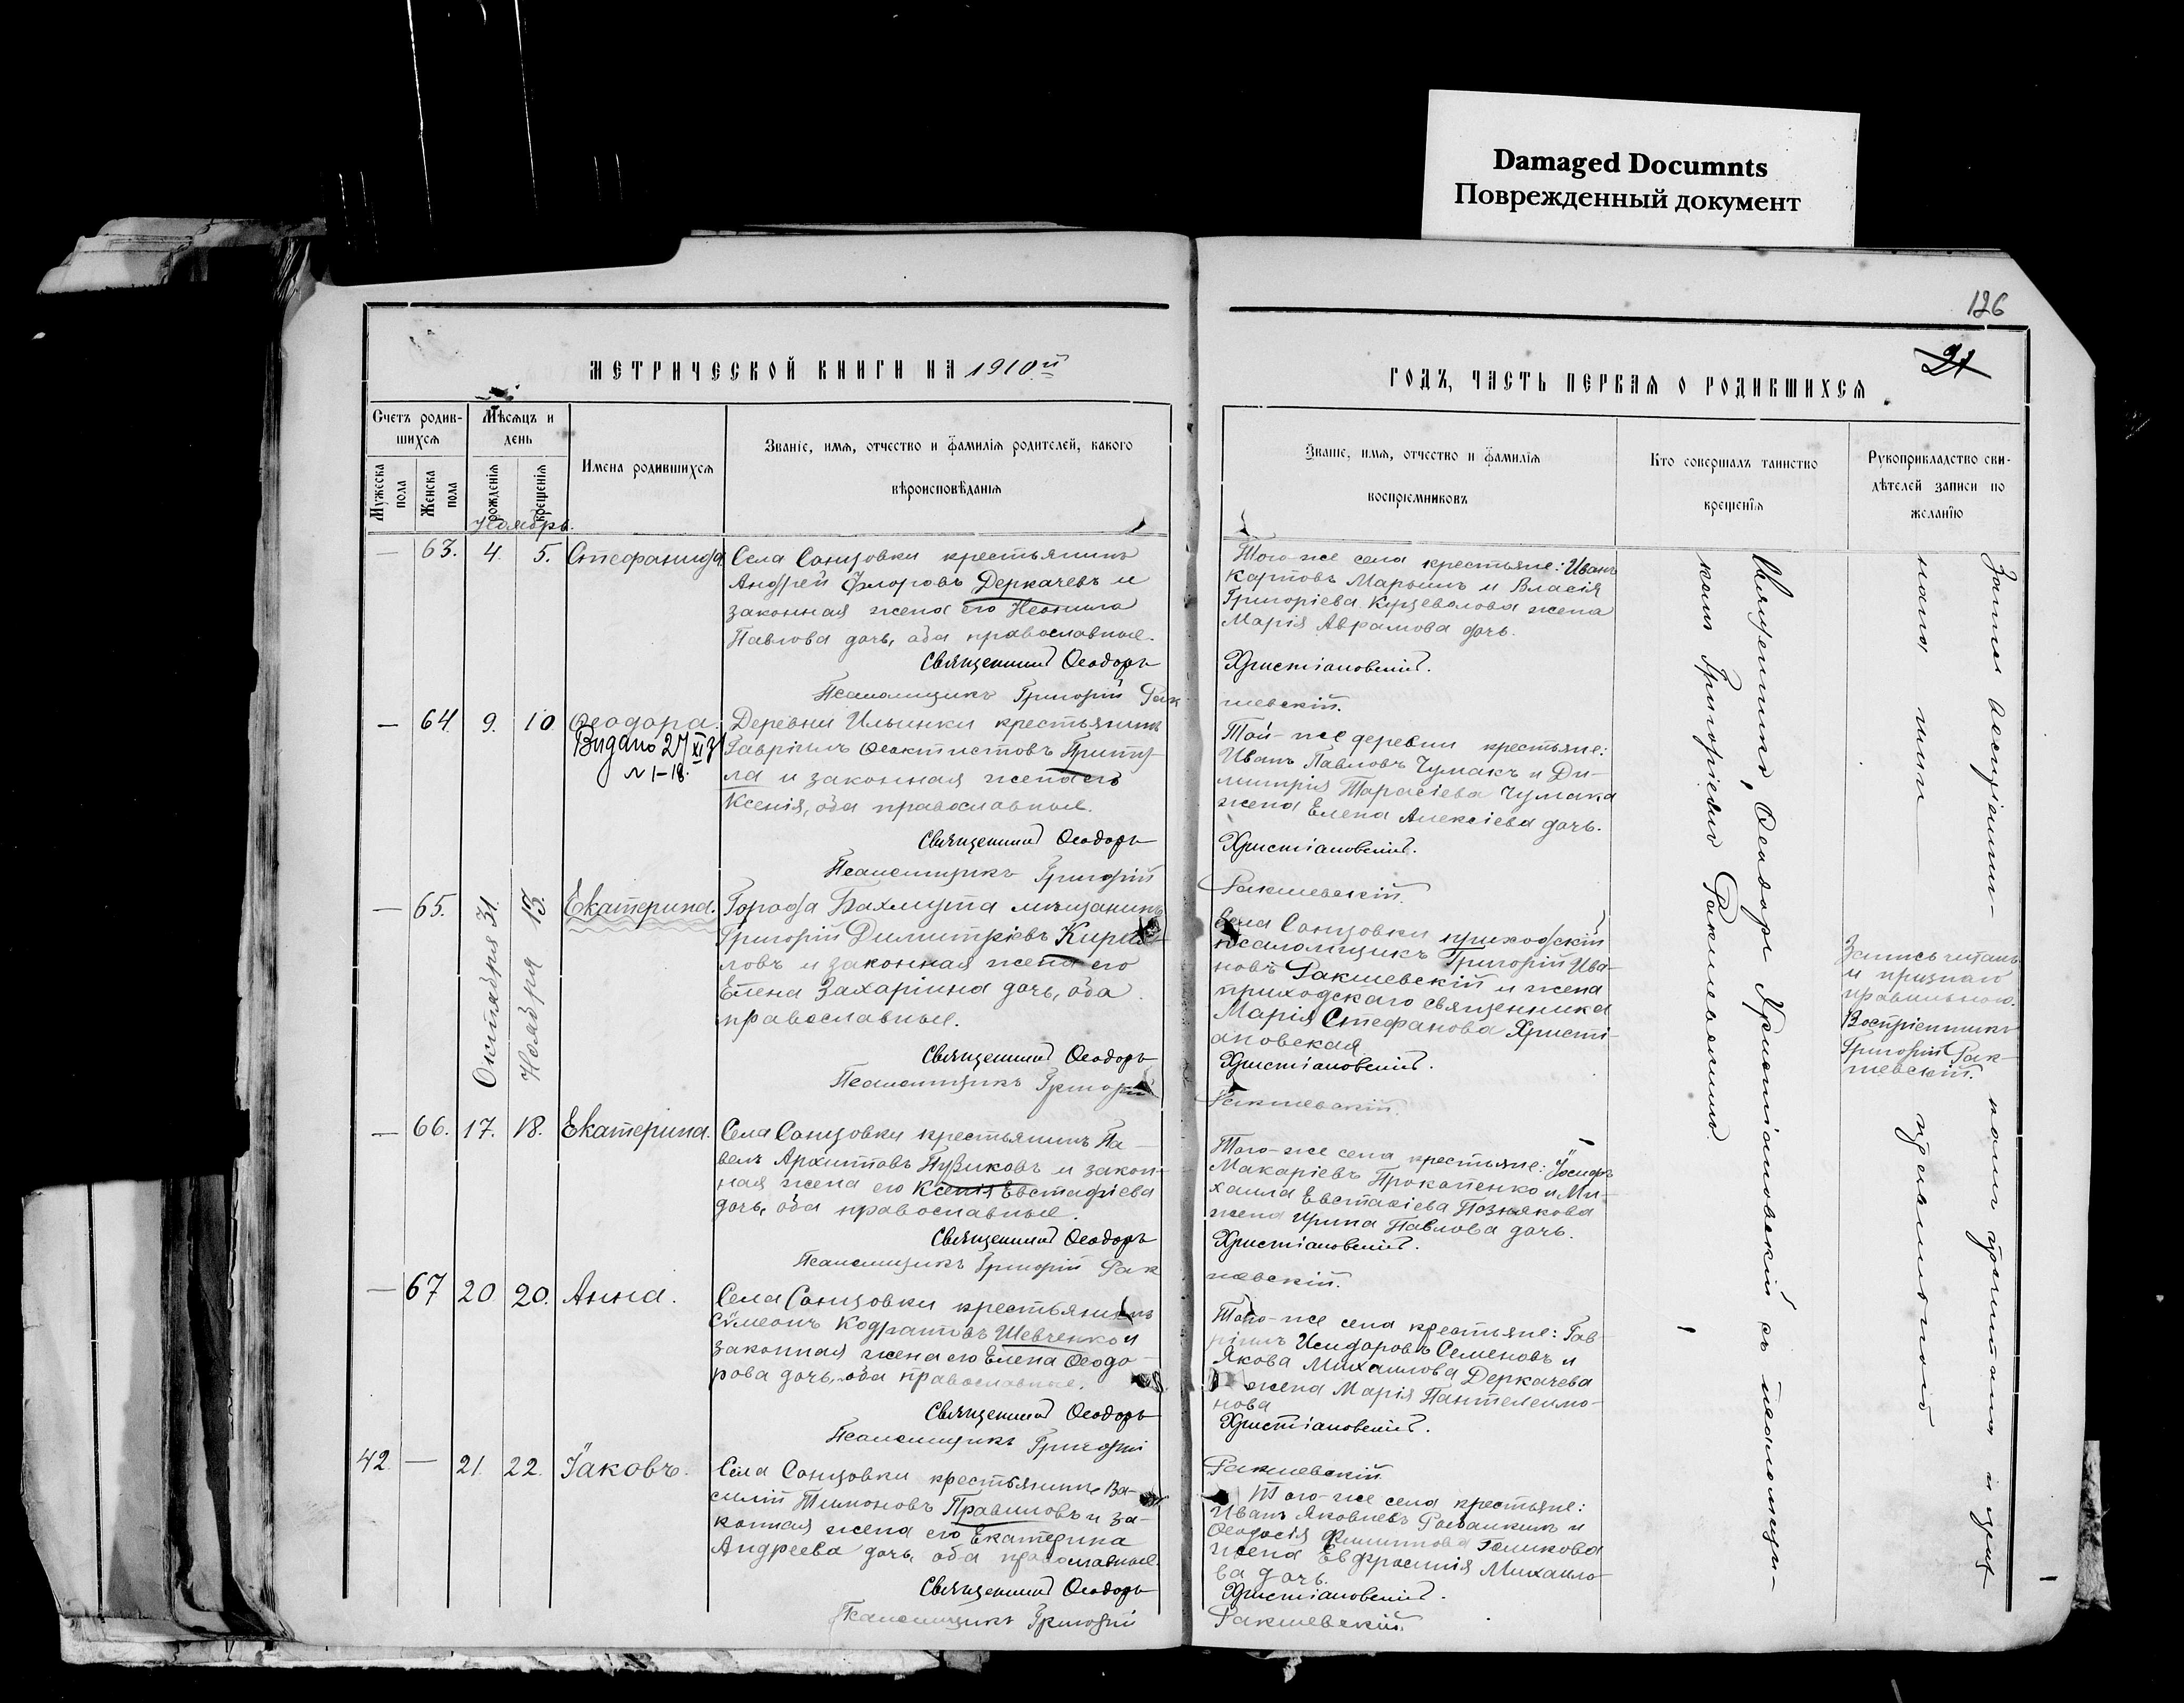 Damaged Documnts
Поврежденный документ
126
21
МЕТРИЧЕСКОЙ КНИГИ НА 1910й
ГОДЪ, ЧАСТЬ ПЕРВАЯ О РОДИВШИХСЯ
Счетъ родив-
шихся
Мужеска пола
Женска пола
Мѣсяцъ и
день
рожденія
крещенія
Имена родившихся
Званіе, имя, отчество и фамилія родителей, какого
вѣроисповѣданія
Званіе, имя, отчество и фамилія
воспріемниковъ
Кто совершалъ таинство
крещенія
Рукоприкладство сви-
дѣтелей записи по
желанію
Ноябрь.
— 63. 4. 5. Стефанида
Села Сонцовки крестьянинъ
Андрей Флоровъ Деркачевъ и
законная жена его Неонила
Павлова дочь, оба православные.
Священникъ Ѳеодоръ
Псаломщикъ Григорій Рак
Того-же села крестьяне: Иванъ
Карповъ Марьинъ и Власія
Григоріева Курзевалова жена
Марія Аврамова дочь.
Христіановскій.
шевскій.
— 64. 9. 10 Ѳеодора.
Видано 27/XI 31
N 1-18.
Деревни Ильинки крестьянинъ
Гавріилъ Ѳеоктистовъ Приту-
ла и законная жена его
Ксенія, оба православные.
Священникъ Ѳеодоръ
Псаломщикъ Григорій
Той-же деревни крестьяне:
Иванъ Павловъ Чумакъ и Ди-
митрія Тарасіева Чумака
жена Елена Алексіева дочь.
Христіановскій.
Ракшевскій.
— 65. Октября 31. Ноября 13. Екатерина.
Города Бахмута мѣщанинъ
Григорій Димитріевъ Кирил-
ловъ и законная жена его
Елена Захаріина дочь, оба
православные.
Священникъ Ѳеодоръ
Псаломщикъ Григорій
Села Сонцовки приходскій
псаломщикъ Григорій Ива-
новъ Ракшевскій и жена
приходскаго священника
Марія Стефанова Христі-
ановская
Христіановскій.
Ракшевскій.
Запись читалъ
и признаю
правильною.
Воспріемникъ
Григорій Рак-
шевскій.
— 66. 17. 18. Екатерина.
Села Сонцовки крестьянинъ Па-
велъ Архиповъ Пузиковъ и закон-
ная жена его Ксенія Евстафіева
дочь, оба православные.
Священникъ Ѳеодоръ
Псаломщикъ Григорій Рак
Того-же села крестьяне: Іосифъ
Макаріевъ Прокопенко и Ми-
хаила Евстафіева Познякова
жена Ирина Павлова дочь.
Христіановскій.
шевскій.
— 67 20 20. Анна.
Села Сонцовки крестьянинъ
Сѵмеонъ Кодратовъ Шевченко и
законная жена его Елена Ѳеодо-
рова дочь, оба православные.
Священникъ Ѳеодоръ
Псаломщикъ Григорій
Того-же села крестьяне: Гав-
ріилъ Исидоровъ Семеновъ и
Якова Михаилова Деркачева
жена Марія Пантелеимо-
нова
Христіановскій.
Ракшевскій.
42. — 21. 22. Іаковъ.
Села Сонцовки крестьянинъ Ва-
силій Тимоновъ Правиловъ и за-
конная жена его Екатерина
Андреева дочь, оба православные.
Священникъ Ѳеодоръ
Псаломщикъ Григорій
Того-же села крестьяне:
Иванъ Яковлевъ и
Ѳеодосія Филиппова Голикова
жена Евфросинія Михаило-
ва дочь.
Христіановскій.
Ракшевскій.
Священникъ Ѳеодоръ Христіановскій съ псаломщи-
комъ Григоріемъ Ракшевскимъ.
нами прочитана и
нами правильною